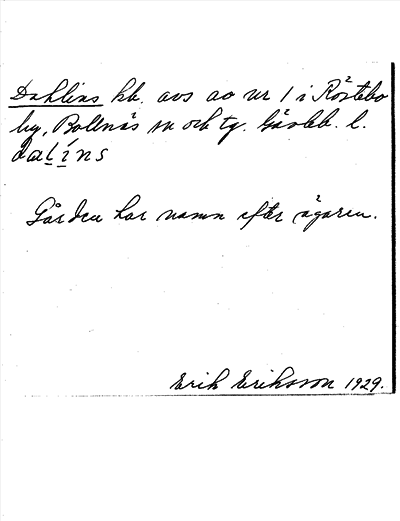 Dahlins hb. avs av nr 1 i Röstebo
by, Bollnäs sn och tg. Gävleb. l.
dalíns
Gården har namn efter ägaren.
Erik Eriksson 1929.